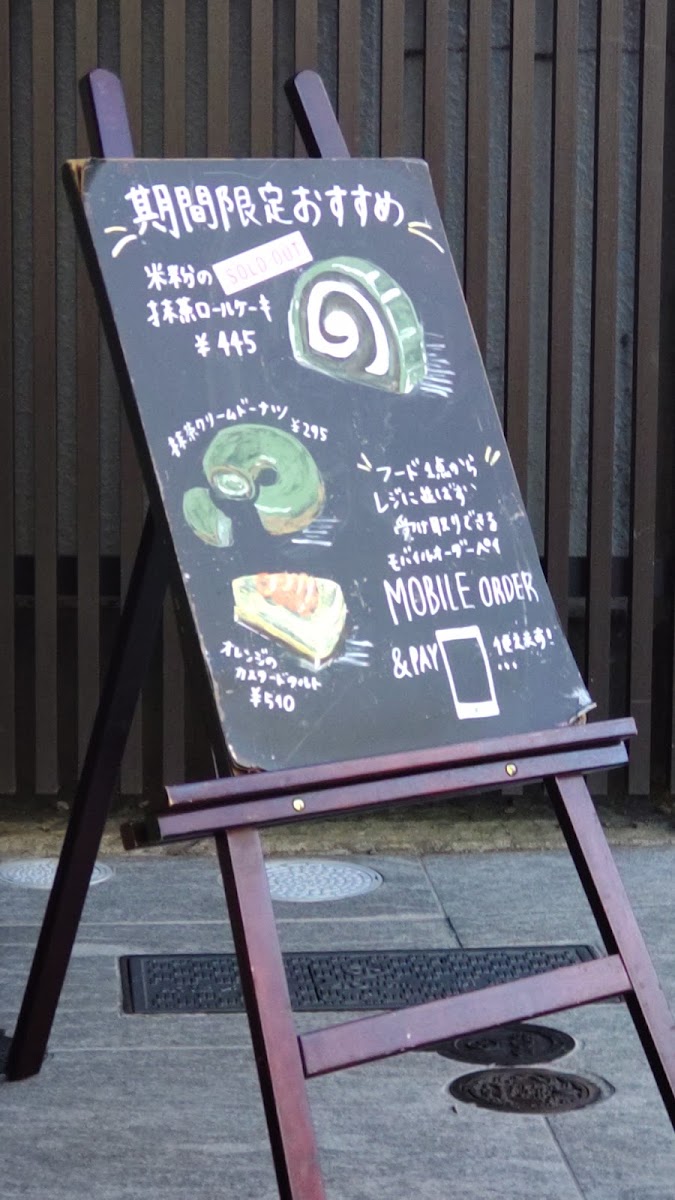 期間限定おすすめ
米粉の SOLD OUT
抹茶ロールケーキ
¥445
抹茶クリームドーナツ ¥295
フード1点から
レジに並ばずに
受け取りできる
モバイルオーダーペイ
MOBILE ORDER
&PAY 使えます!
...
オレンジの
カスタードタルト
¥510